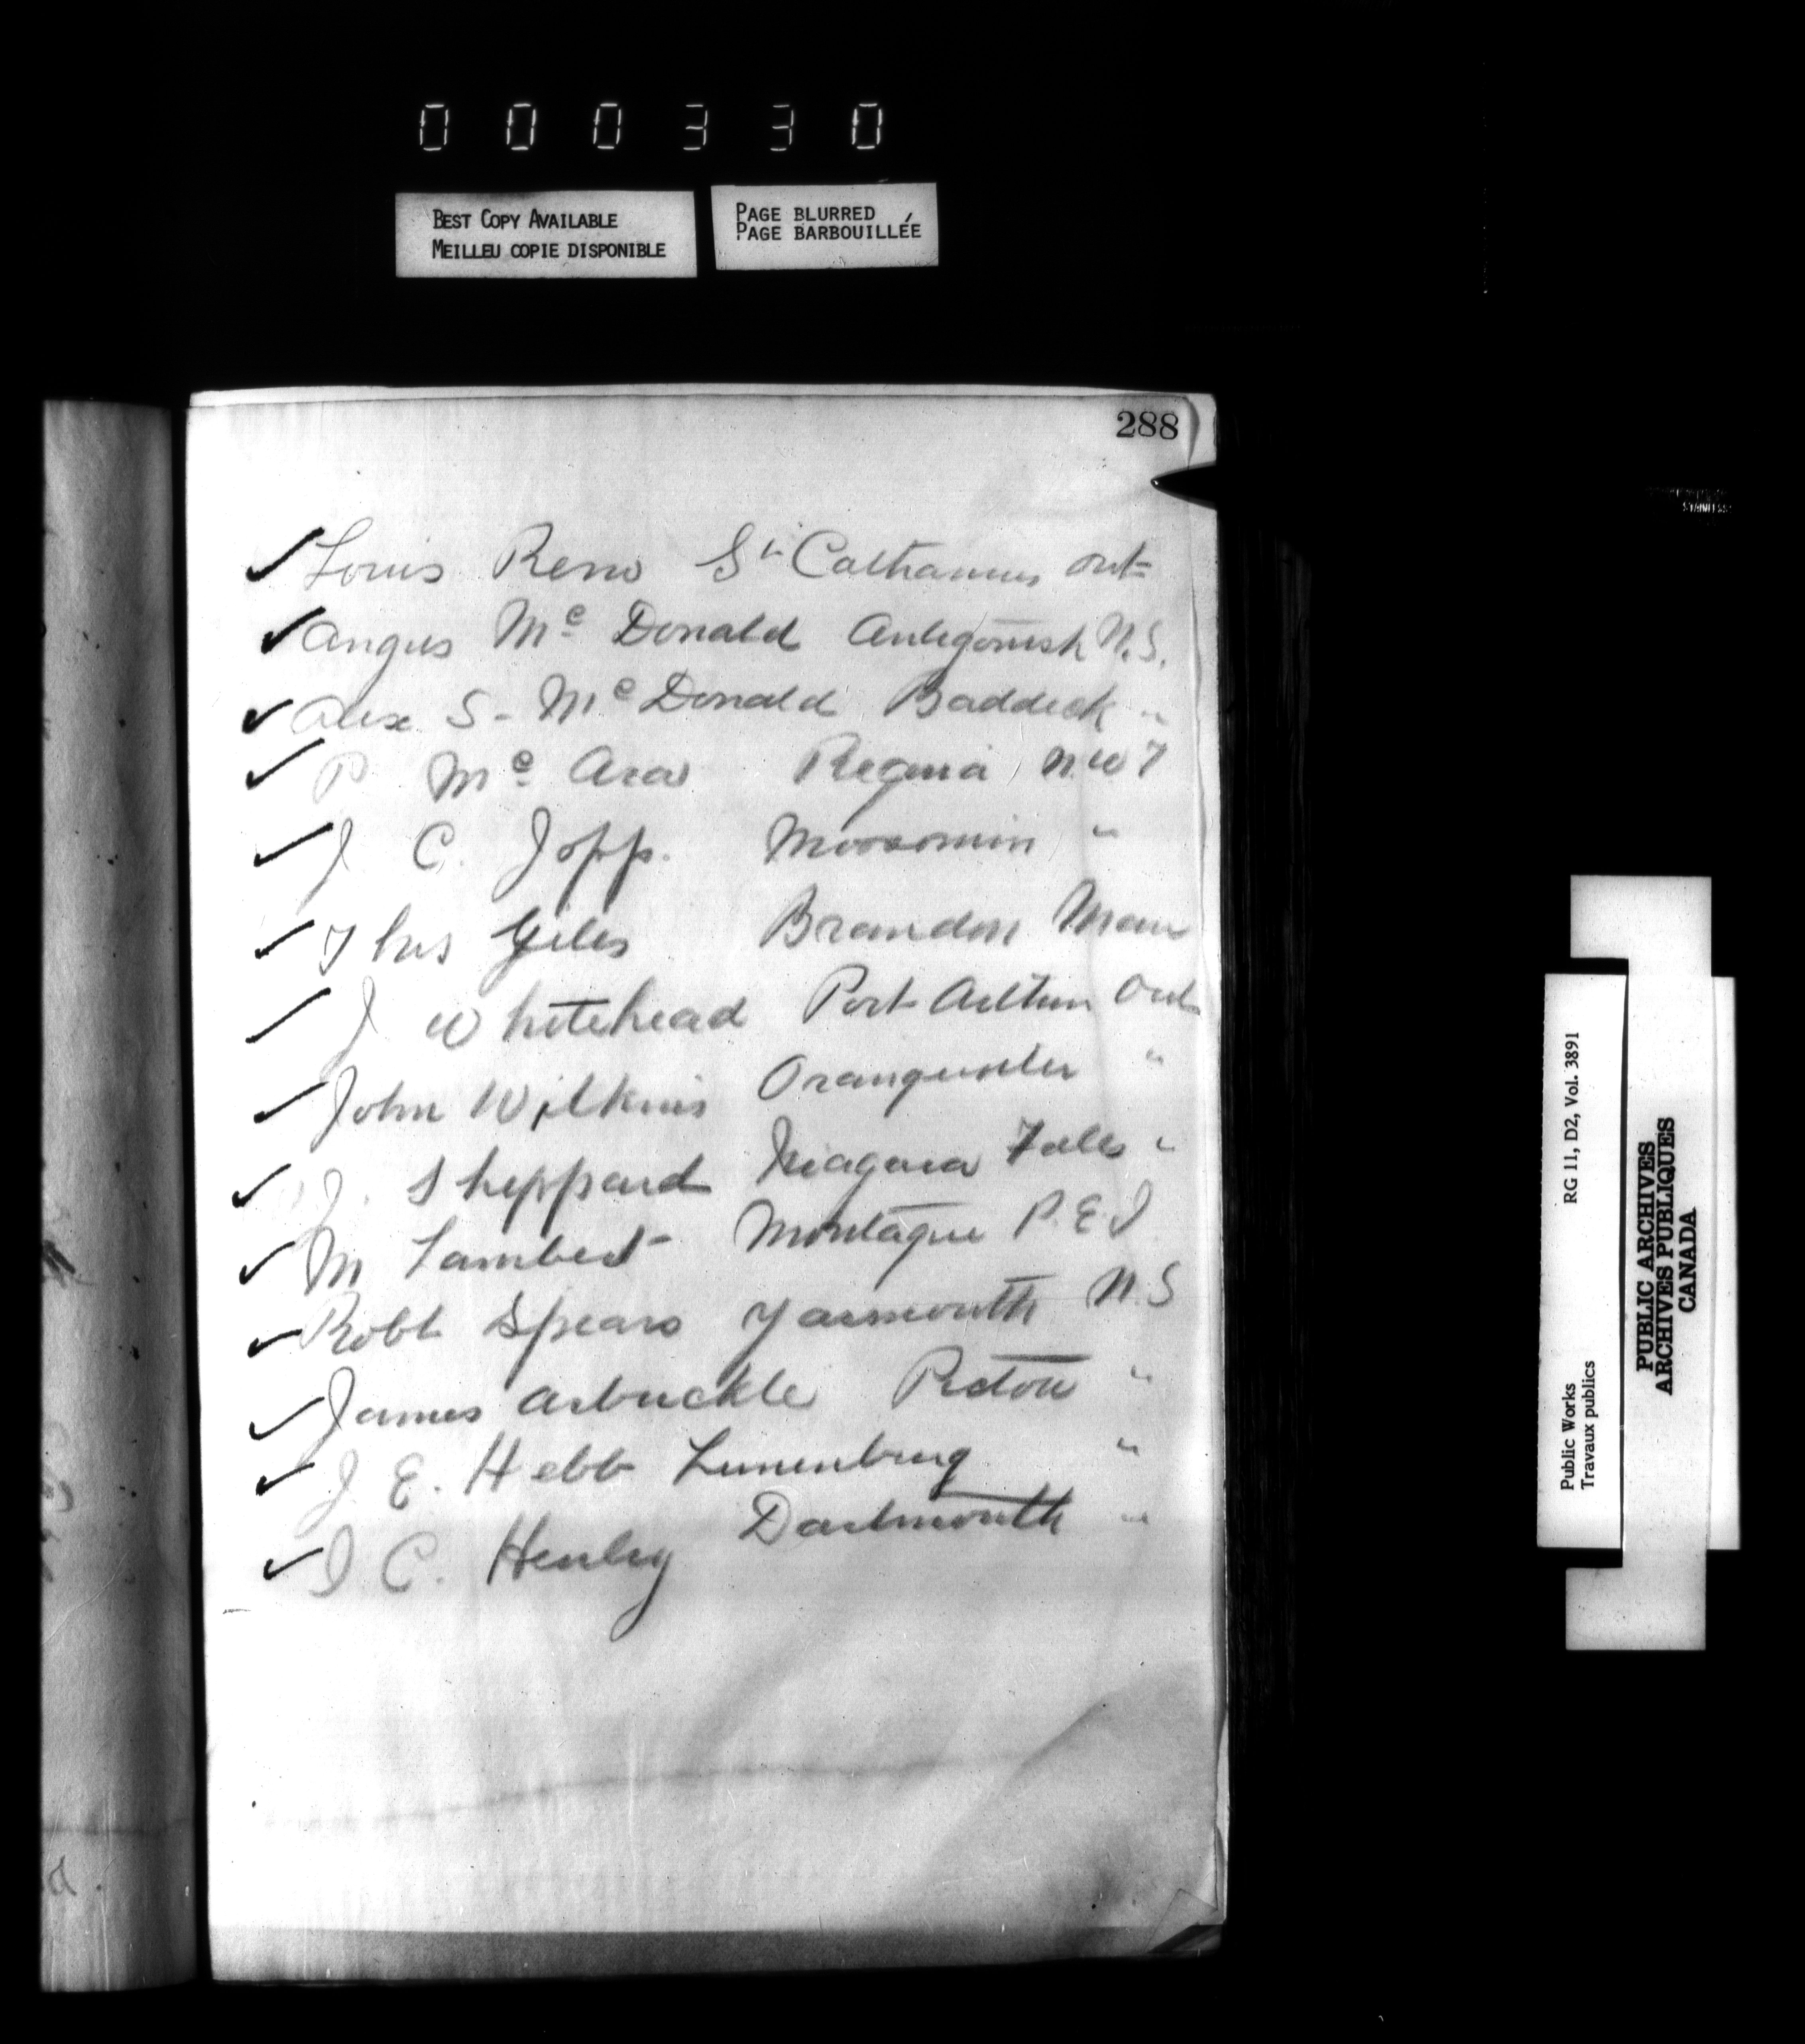 000330
BEST COPY AVAILABLE
MEILLEU COPIE DISPONIBLE
PAGE BLURRED
PAGE BARBOUILLÉE
288
✓ Louis Reno St Catharines Ont
✓ Angus Mc Donald Antigonish N.S.
✓ Alex S- Mc Donald Baddeck "
✓ P Mc Ara Regina N W T
✓ J C. Jopp. Moosomin "
✓ Thos Giles Brandon Man
✓ J Whitehead Port Arthur Ont
✓ John Wilkins Orangeville "
✓ J. Sheppard Niagara Falls "
✓ M Lambert Montague P.E.I
✓ Robt Spears Yarmouth N.S
✓ James Arbuckle Pictou "
✓ J E. Hebb Lunenburg "
✓ I C. Henley Dartmouth "
Public Works
Travaux publics
RG 11, D2, Vol. 3891
PUBLIC ARCHIVES
ARCHIVES PUBLIQUES
CANADA